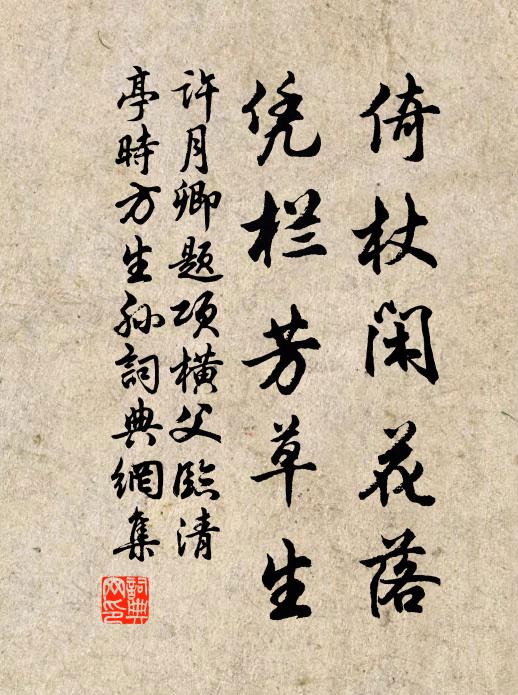 倚杖闲花落
凭栏芳草生
许月卿题项横父临清
亭时方生孙詞典網集
詞典
网印